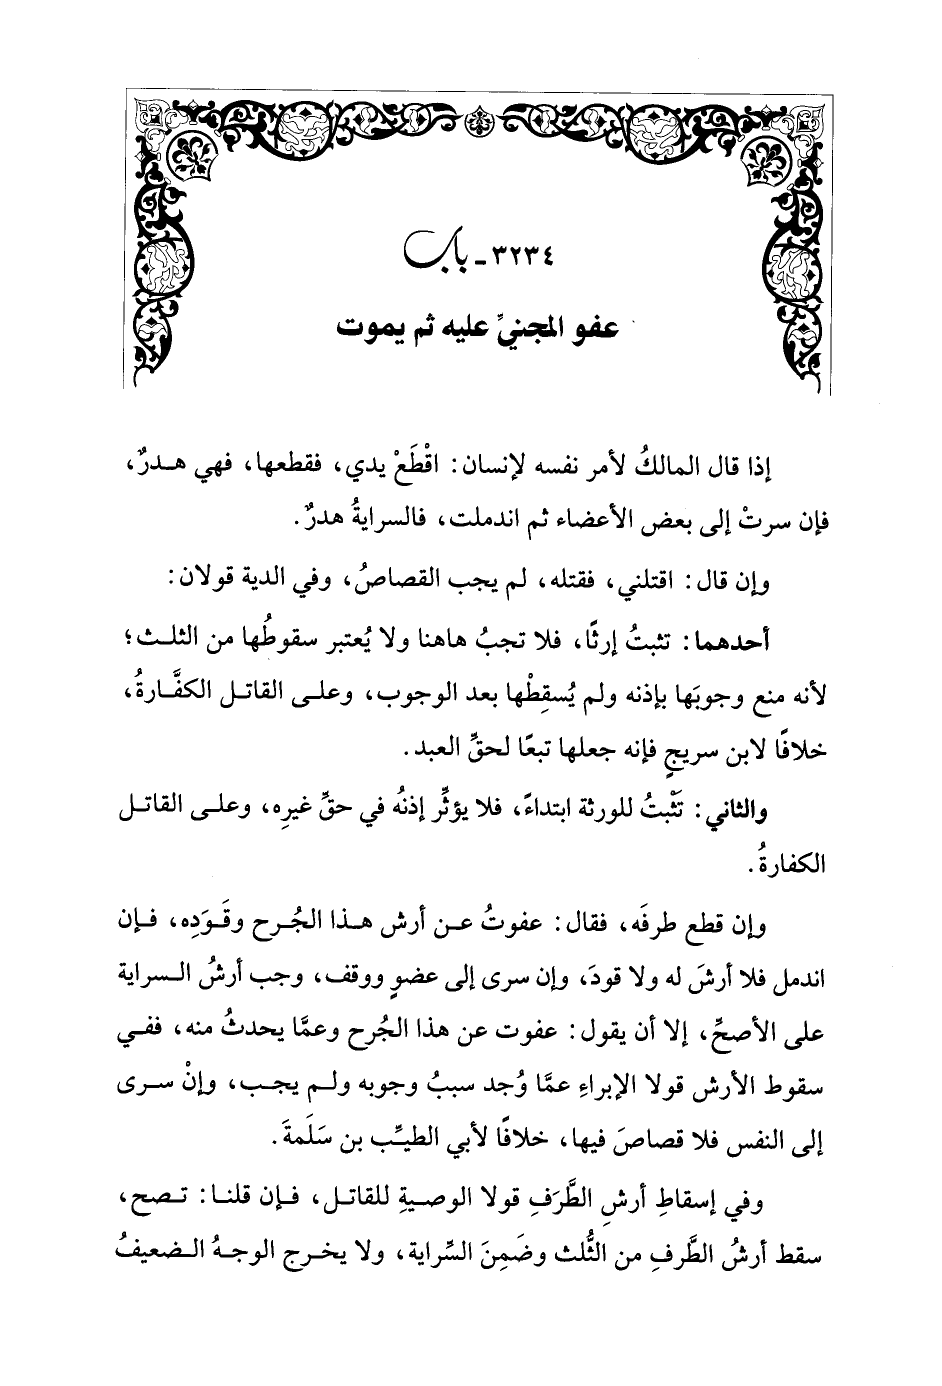 ٣٢٣٤ - باب
عفو المجنيِّ عليه ثم يموت
إذا قال المالكُ لأمر نفسه لإنسان: اقْطَعْ يدي، فقطعها، فهي هـدرٌ،
فإن سرتْ إلى بعض الأعضاء ثم اندملت، فالسرايةُ هدرٌ.
وإن قال: اقتلني، فقتله، لم يجب القصاصُ، وفي الدية قولان:
أحدهما: تثبتُ إرثًا، فلا تجبُ هاهنا ولا يُعتبر سقوطُها من الثلث؛
لأنه منع وجوبَها بإذنه ولم يُسقِطْها بعد الوجوب، وعلى القاتل الكفَّارةُ،
خلافًا لابن سريجٍ فإنه جعلها تبعًا لحقِّ العبد.
والثاني: تَثْبتُ للورثة ابتداءً، فلا يؤثِّر إذنُه في حقِّ غيرِه، وعلى القاتل
الكفارةُ.
وإن قطع طرفَه، فقال: عفوتُ عن أرش هذا الجُرح وقَوَدِه، فإن
اندمل فلا أرشَ له ولا قودَ، وإن سرى إلى عضوٍ ووقف، وجب أرشُ السراية
على الأصحِّ، إلا أن يقول: عفوت عن هذا الجُرح وعمَّا يحدثُ منه، ففي
سقوط الأرش قولا الإبراءِ عمَّا وُجد سببُ وجوبه ولم يجب، وإنْ سرى
إلى النفس فلا قصاصَ فيها، خلافًا لأبي الطيِّب بن سَلَمةَ.
وفي إسقاطِ أرشِ الطَّرَفِ قولا الوصيةِ للقاتل، فإن قلنا: تصح،
سقط أرشُ الطَّرفِ من الثُّلث وضَمِنَ السِّراية، ولا يخرج الوجهُ الضعيفُ